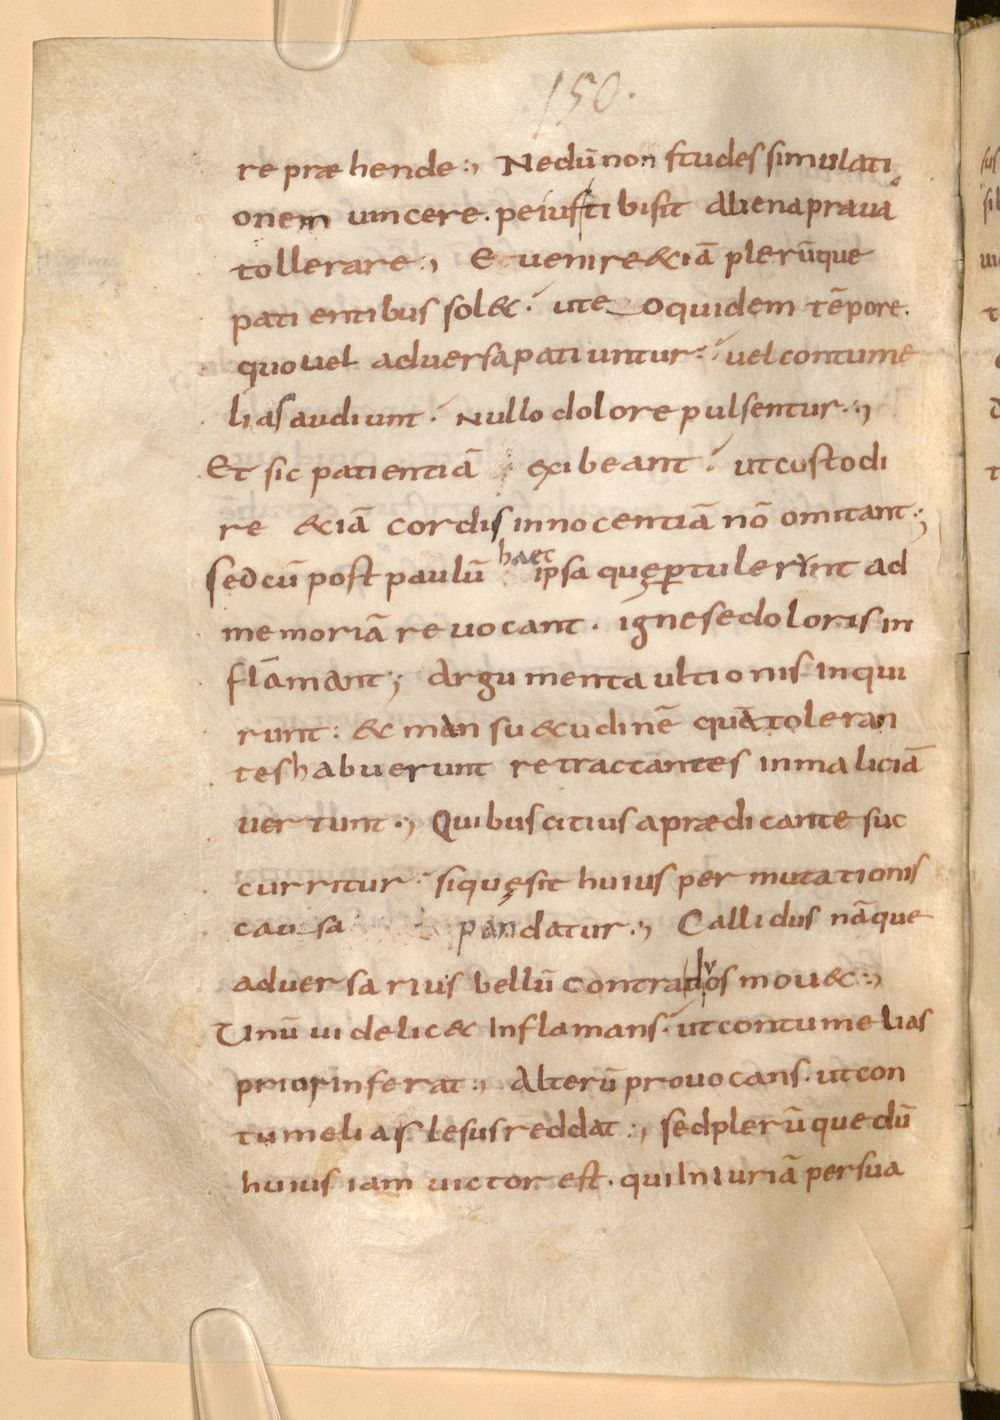 150.
repræhende:, Nedū non studes simulati
onem vincere. peius tibi sit aliena praua
tollerare:, Euenire &iā plerūque
patientibus sol&. ut eo quidem tēpore.
quo uel aduersa patiuntur. uel contume
lias audiunt. Nullo dolore pulsentur.,
Et sic patientiā exibeant. ut custodi
re &iā cordis innocentiā nō omitant.,
sed cū post paulū haec ipsa quę ꝑtulerint ad
memoriā reuocant. igne se doloris in
flāmant; Argumenta ultionis inqui
runt: & mansu&udinē quā toleran
tes habuerunt retractantes in maliciā
uertunt., Quibus citius a prædicante suc
curritur. si quę sit huius permutationis
causa pandatur., Callidus nāque
aduersarius bellū contra duos mou&.,
Unū uidelic& Inflamans. ut contumelias
prior inferat., Alterū prouocans. ut con
tumelias lesus reddat., sed plerūque dū
huius iam uictor est. qui Iniuriā persua